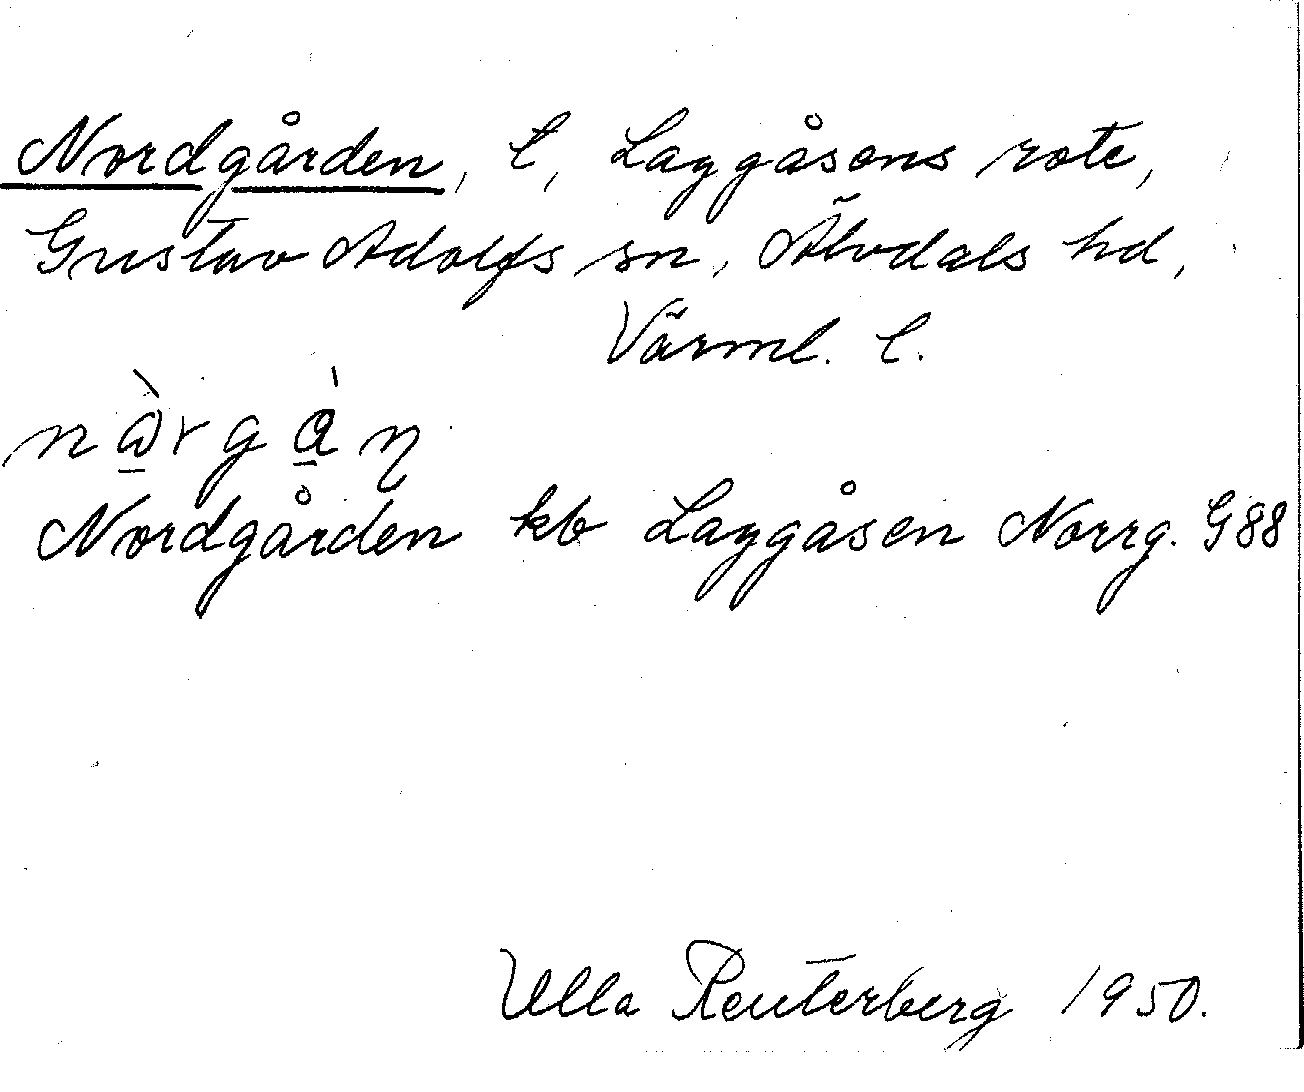 Nordgården, t, Laggåsens rote,
Gustav Adolfs sn, Älvdals hd,
Värml. l.
Nordgården kb Laggåsen Norrg. G88
Ulla Reuterberg 1950.